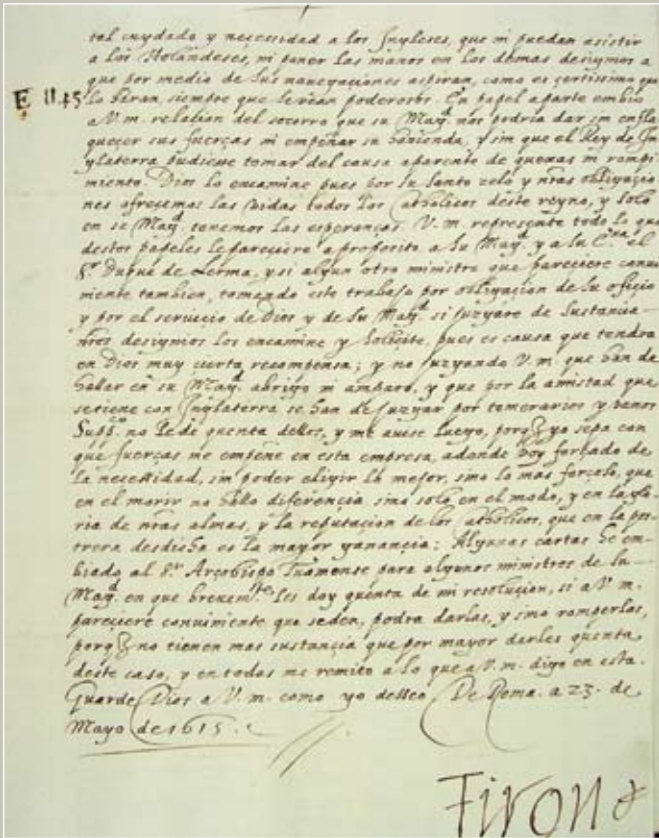 tal cuydado y necesidad a los Ingleses, que ni puedan asistir
a los Holandeses, ni poner las manos en los demas designios a
que por medio de sus navegaciones aspiran, como es certissimo que
E 1145
lo haran siempre que se vean poderosos. En papel aparte embio
a V.m. relaçion del socorro que su Magd. nos podria dar sin enfla
queçer sus fuerças ni empeñar su hazienda, y sin que el Rey de In
ylaterra pudiesse tomar del causa aparente de quexas ni rompi
miento. Dios lo encamine pues por su santo zelo y nras obligaçio
nes ofreçemos las vidas todos los Catholicos deste reyno, y solo
en su Magd. tenemos las esperanças. V.m. represente todo lo que
destos papeles le pareçiere a proposito a Su Magd. y a su Exa. el
Sr. Duque de Lerma, y si algun otro ministro que pareçiere conue
niente tambien, tomando este trabajo por obligaçion de Su ofiçio
y por el serviçio de Dios y de Su Magd. si juzgare de sustançia
nros designios los encamine y soliçite, pues es causa que tendra
en Dios muy cierta recompensa; y no juzgando V.m. que han de
hallar en su Magd. abrigo ni amparo, y que por la amistad que
se tiene con Inglaterra se han de juzgar por temerarios y vanos
Suppco. no le de quenta dellos, y me auise luego, porq yo sepa con
que fuerças me empeñe en esta empresa, adonde voy forçado de
la neçessidad, sin poder eligir lo mejor, sino lo mas forçoso, que
en el morir no hallo diferençia sino solo en el modo, y en la glo
ria de nras almas, y la reputaçion de los Catholicos, que en la pos
trera desdicha es la mayor ganançia: Algunas cartas he em
biado al Sr. Arçobispo Tuamense para algunos ministros de Su
Magd. en que brevemte. les doy quenta de mi resoluçion, si a V.m.
pareçiere conviniente que se den, podra darlas, y sino romperlas,
porq no tienen mas sustançia que por mayor darles quenta
deste caso, y en todas me remito a lo que a V.m. digo en esta.
Guarde Dios a V.m. como yo desseo. De Roma. a 23. de
Mayo de 1615.
Tiron